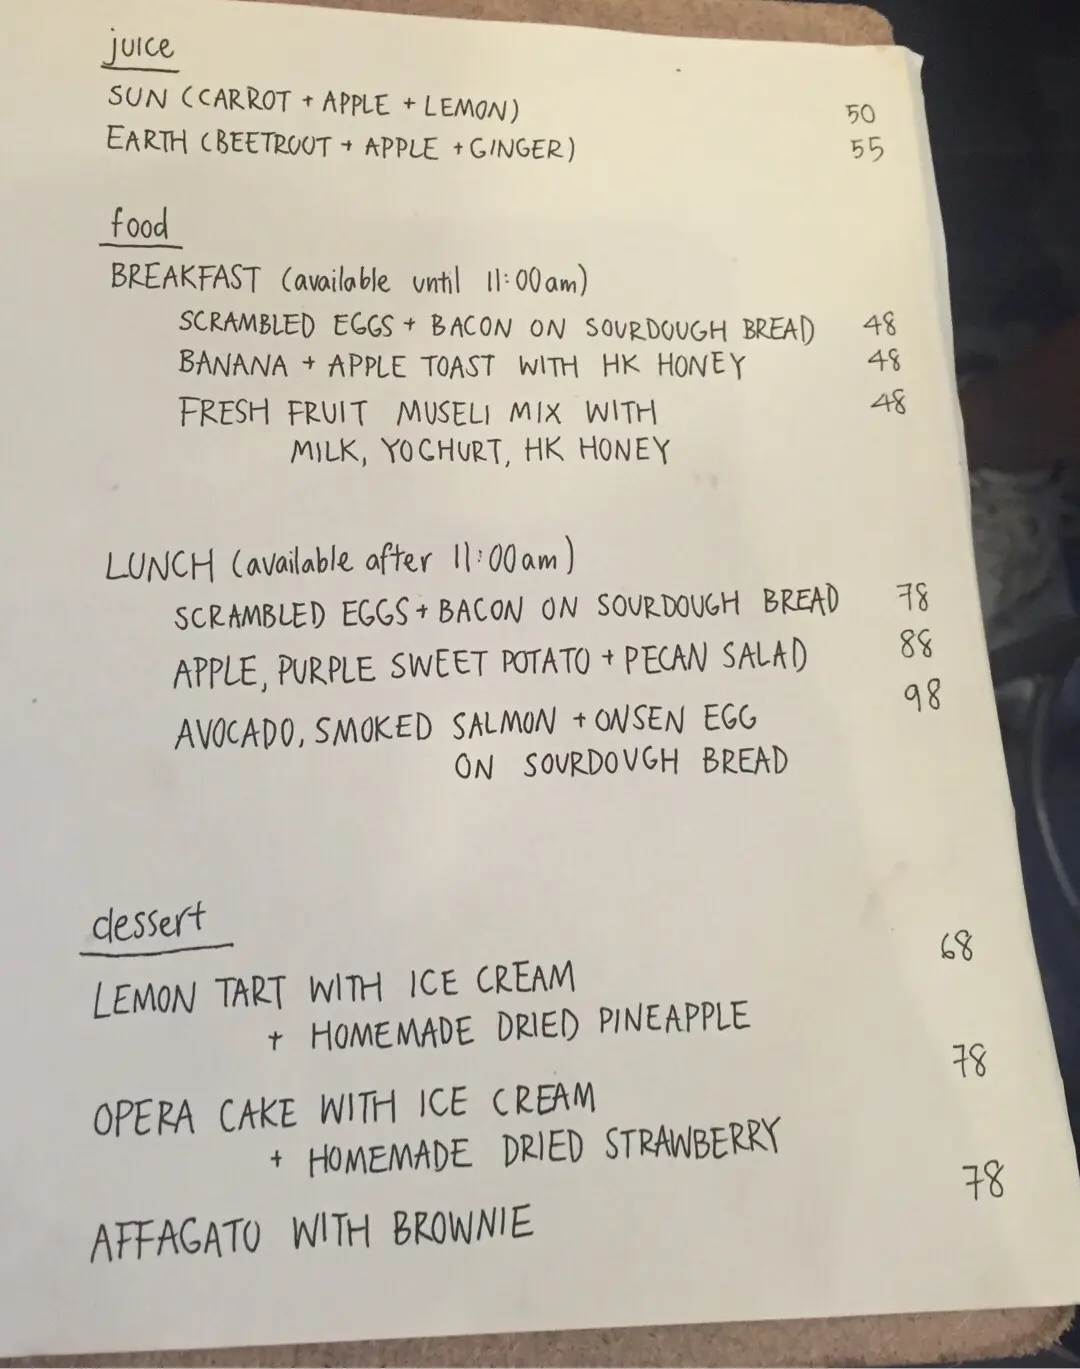 juice
SUN (CARROT + APPLE + LEMON) 50
EARTH (BEETROOT + APPLE + GINGER) 55
food
BREAKFAST (available until 11:00am)
SCRAMBLED EGGS + BACON ON SOURDOUGH BREAD 48
BANANA + APPLE TOAST WITH HK HONEY 48
FRESH FRUIT MUSELI MIX WITH 48
MILK, YOGHURT, HK HONEY
LUNCH (available after 11:00am)
SCRAMBLED EGGS + BACON ON SOURDOUGH BREAD 78
APPLE, PURPLE SWEET POTATO + PECAN SALAD 88
AVOCADO, SMOKED SALMON + ONSEN EGG 98
ON SOURDOUGH BREAD
dessert
LEMON TART WITH ICE CREAM 68
+ HOMEMADE DRIED PINEAPPLE
OPERA CAKE WITH ICE CREAM 78
+ HOMEMADE DRIED STRAWBERRY
AFFAGATO WITH BROWNIE 78